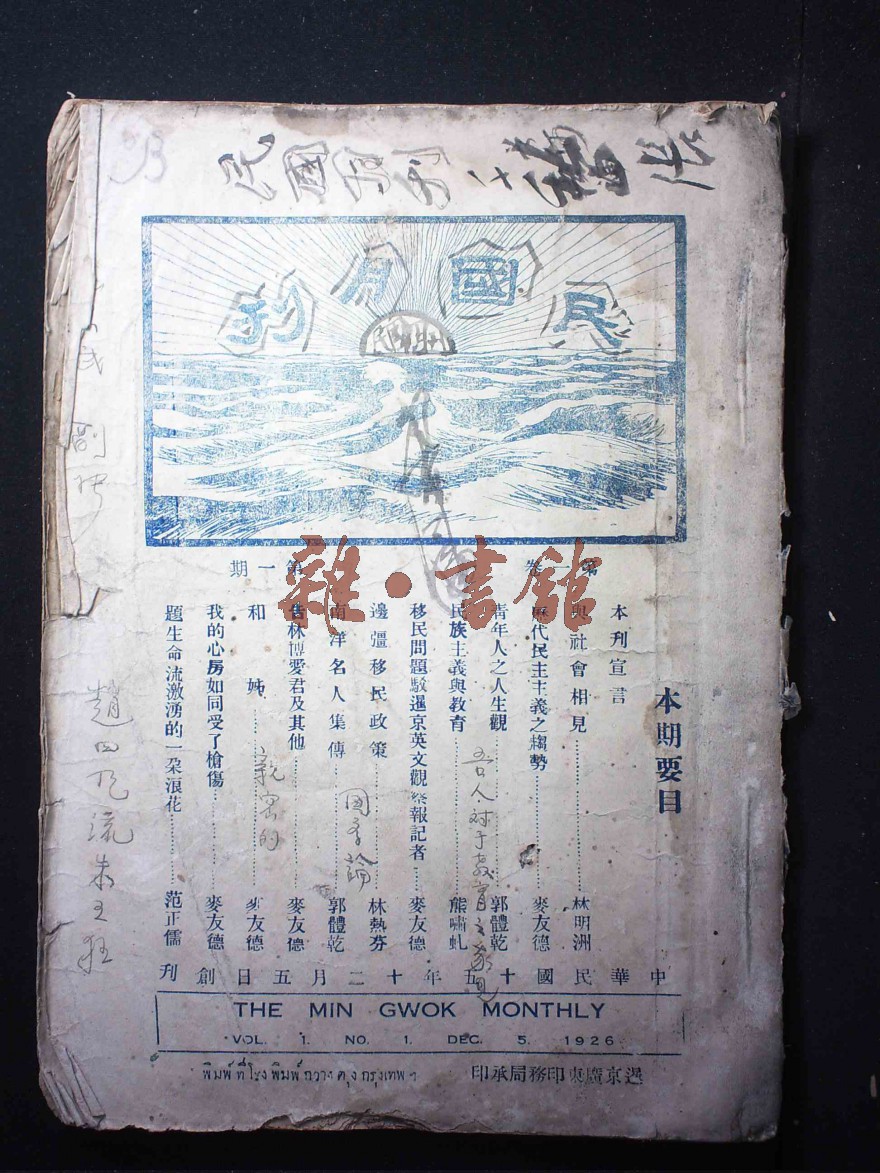 民國月刊
第一卷 第一期
本期要目
本刊宣言
與社會相見……林明洲
歷代民主主義之趨勢……麥友德
青年人之人生觀……郭體乾
民族主義與教育……熊嘯虬
移民問題駁暹京英文觀察報記者……麥友德
邊彊移民政策……林熱芬
南洋名人集傳……郭體乾
告林博愛君及其他……麥友德
和姊……麥友德
我的心房如同受了槍傷……麥友德
題生命流激湧的一朶浪花……范正儒
中華民國十五年十二月五日創刊
THE MIN GWOK MONTHLY
VOL. 1. NO. 1. DEC. 5. 1926
暹京廣東印務局承印
雜·書館
吾人对于教育之
國
親密的